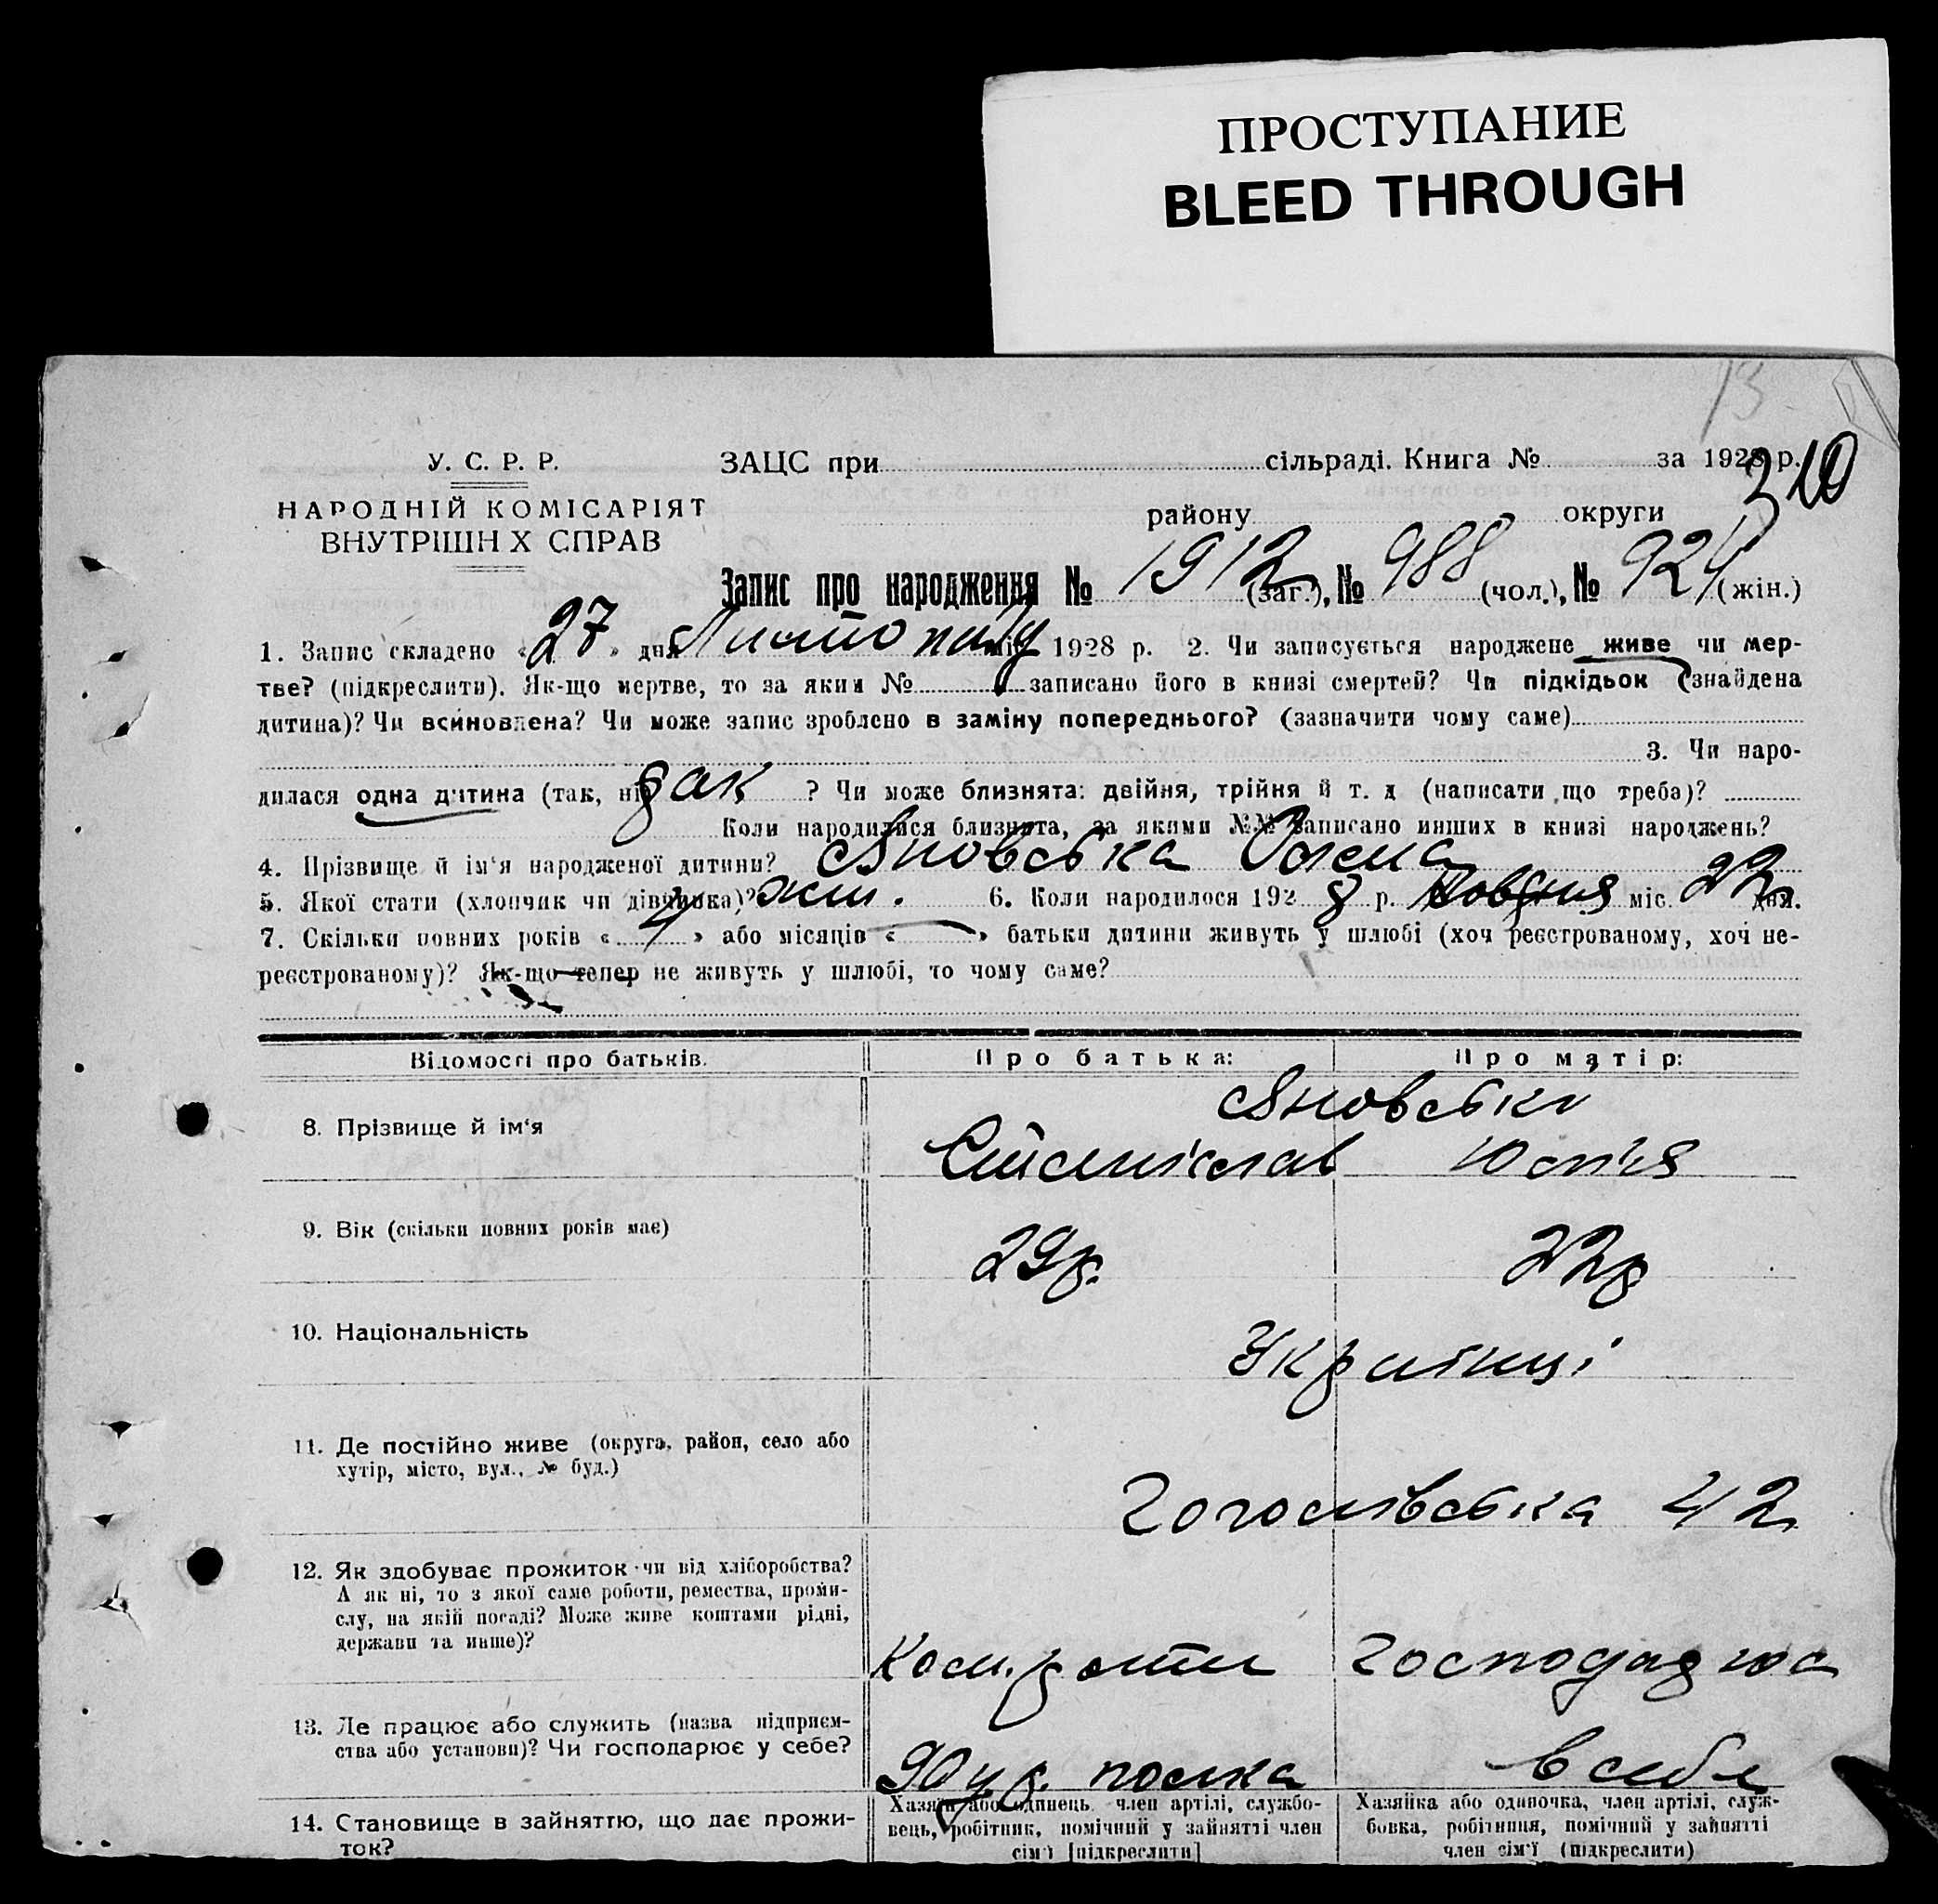 ПРОСТУПАНИЕ
BLEED THROUGH
13
У. С. Р. Р.
НАРОДНІЙ КОМІСАРІЯТ
ВНУТРІШН Х СПРАВ
ЗАЦС при сільраді. Книга № за 1928 р.
310
району округи
Запис про народження № 1912 (заг.), № 988 (чол.), № 924 (жін.)
1. Запис складено «27» дня Листопаду 1928 р. 2. Чи записується народжене живе чи мер-
тве? (підкреслити). Як-що мертве, то за яким № записано його в книзі смертей? Чи підкідьок (знайдена
дитина)? Чи всиновлена? Чи може запис зроблено в заміну попереднього? (зазначити чому саме)
3. Чи наро-
дилася одна дитина (так, ні) так ? Чи може близнята: двійня, трійня й т. д (написати що треба)?
Коли народилися близнята, за якими №№ записано инших в книзі народжень?
4. Прізвище й ім'я народженої дитини? Яновська Олена
5. Якої стати (хлопчик чи дівчинка)? жін. 6. Коли народилося 1928 р. Жовтня міс. 22 дня.
7. Скільки повних років «4» або місяців «—» батьки дитини живуть у шлюбі (хоч реєстрованому, хоч не-
реєстрованому)? Як-що тепер не живуть у шлюбі, то чому саме?
Відомості про батьків. Про батька: Про матір:
8. Прізвище й ім'я
Яновські
Станіслав Юлія
9. Вік (скільки повних років має) 29р. 22р
10. Національність Українці
11. Де постійно живе (округа, район, село або
хутір, місто, вул., № буд.)
Гоголівська 42
12. Як здобуває прожиток чи від хліборобства?
А як ні, то з якої саме роботи, ремества, проми-
слу, на якій посаді? Може живе коштами рідні,
держави та инше)?
Ком. роти Господарює
13. Де працює або служить (назва підприєм-
ства або установи)? Чи господарює у себе?
полка в себе
14. Становище в зайняттю, що дає прожи-
ток?
Хазяїн або одинець, член артілі, службо-
вець, робітник, помічний у зайнятті член
сім'ї [підкреслити]
Хазяйка або одиночка, член артілі, служ-
бовка, робітниця, помічний у зайнятті
член сім'ї (підкреслити)